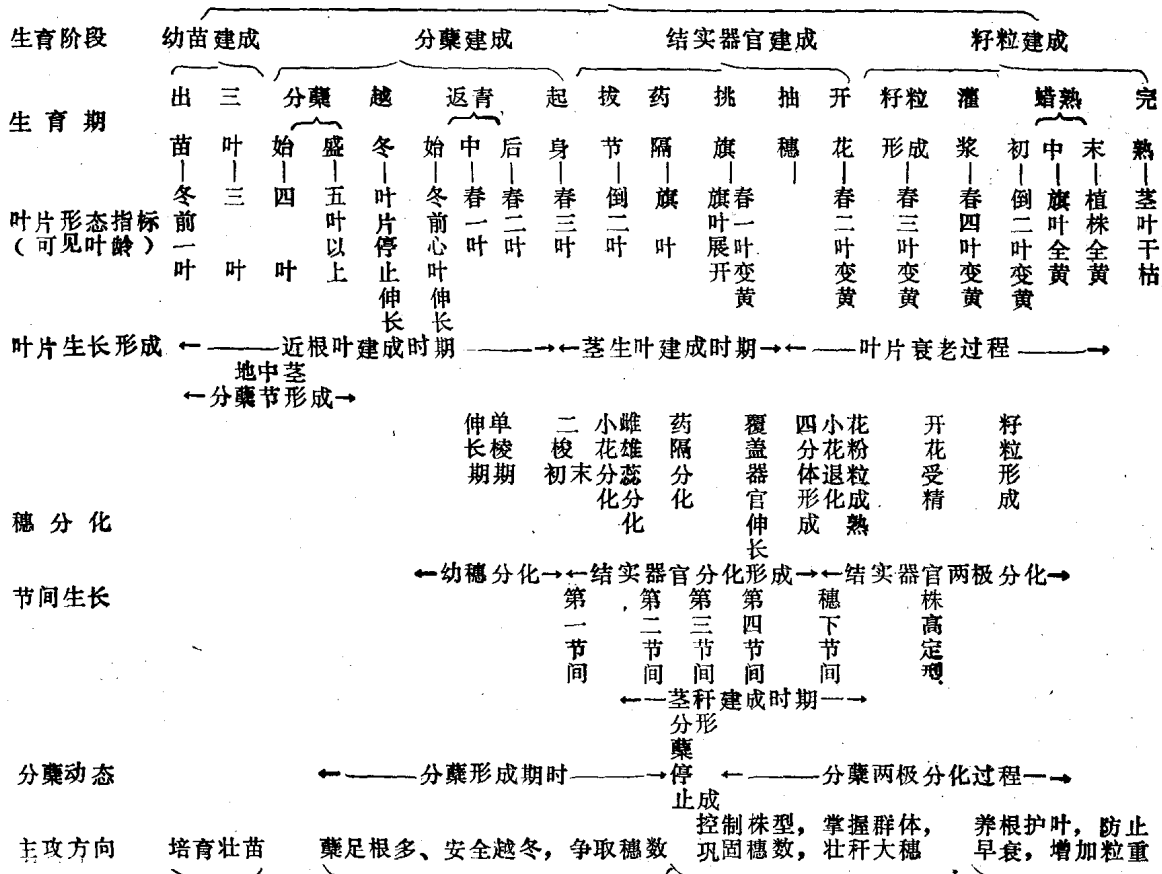 生育阶段 幼苗建成 分蘖建成 结实器官建成 籽粒建成
生育期 出苗 三叶 分蘖 始 盛 越冬 返青 始 中 后 起身 拔节 药隔 挑旗 抽穗 开花 籽粒形成 灌浆 蜡熟 初 中 末 完熟
叶片形态指标
(可见叶龄) 冬前一叶 三叶 四叶 五叶以上 叶片停止伸长 冬前心叶伸长 春一叶 春二叶 春三叶 倒二叶 旗叶 旗叶展开 春一叶变黄 春二叶变黄 春三叶变黄 春四叶变黄 倒二叶变黄 旗叶全黄 植株全黄 茎叶干枯
叶片生长形成 ←——近根叶建成时期——→←茎生叶建成时期→←—叶片衰老过程——→
地中茎
←分蘖节形成→
穗分化 伸长期 单棱期 二棱初 末 小花分化 雌雄蕊分化 药隔分化 覆盖器官伸长 四分体形成 小花退化 花粉粒成熟 开花受精 籽粒形成
←幼穗分化→←结实器官分化形成→←结实器官两极分化→
节间生长 第一节间 第二节间 第三节间 第四节间 穗下节间 株高定型
←—茎秆建成时期—→
分蘖动态 ←———分蘖形成期时———→ 分蘖停止 形成 ←———分蘖两极分化过程—→
主攻方向 培育壮苗 蘖足根多、安全越冬，争取穗数 控制株型，掌握群体， 养根护叶，防止
巩固穗数，壮秆大穗 早衰，增加粒重